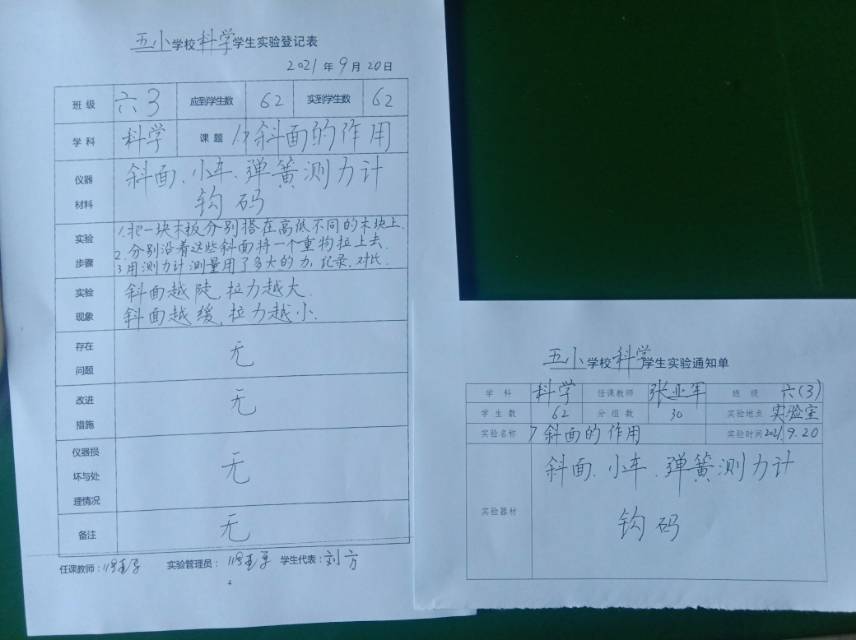 五小学校科学学生实验登记表
2021年9月20日
班级 六3 应到学生数 62 实到学生数 62
学科 科学 课题 17斜面的作用
仪器材料 斜面、小车、弹簧测力计
钩码
实验步骤 1.把一块木板分别搭在高低不同的木块上.
2.分别沿着这些斜面将一个重物拉上去.
3用测力计测量用了多大的力,记录、对比.
实验现象 斜面越陡,拉力越大.
斜面越缓,拉力越小.
存在问题 无
改进措施 无
仪器损坏与处理情况 无
备注 无
任课教师: 实验管理员: 学生代表:刘方
五小学校科学学生实验通知单
学科 科学 任课教师 张亚军 班级 六(3)
学生数 62 分组数 30 实验地点 实验室
实验名称 7斜面的作用 实验时间 2021.9.20
实验器材 斜面、小车、弹簧测力计
钩码